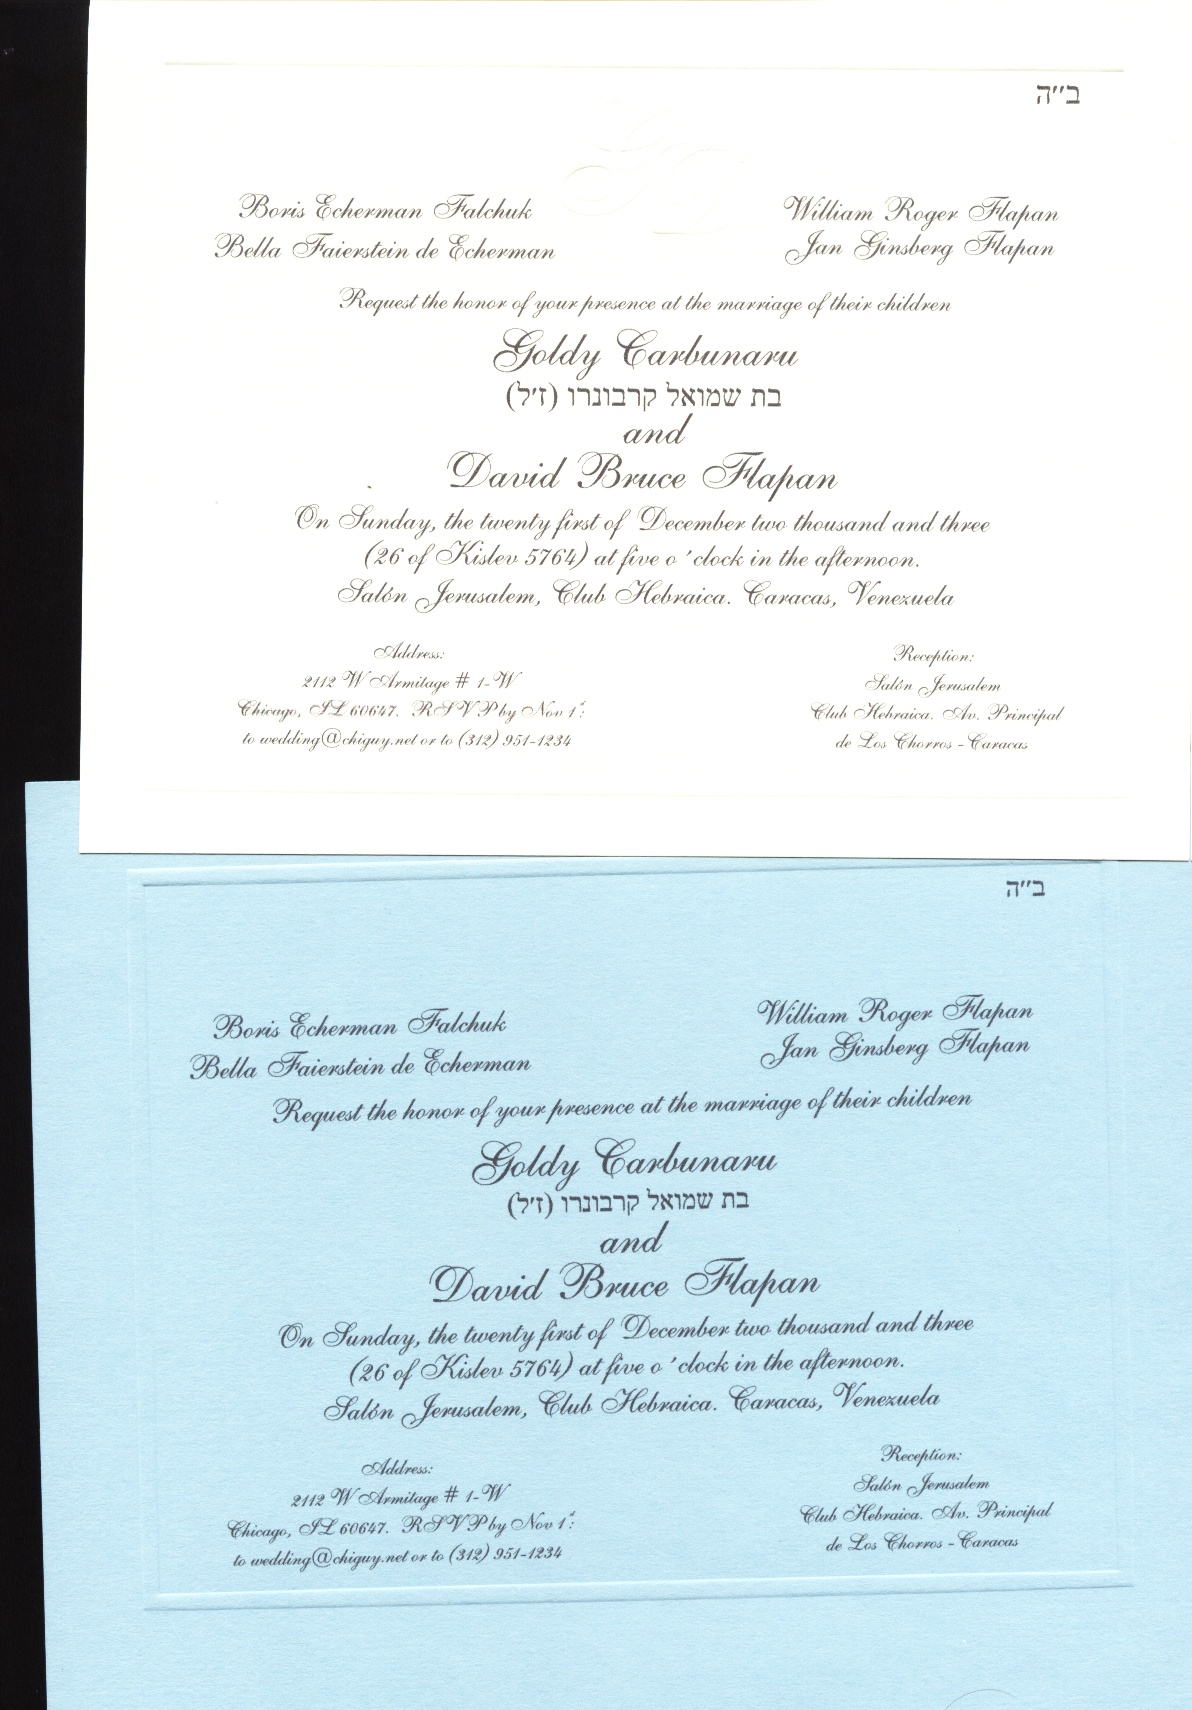 ב"ה
Boris Echerman Falchuk
Bella Faierstein de Echerman
William Roger Flapan
Jan Ginsberg Flapan
Request the honor of your presence at the marriage of their children
Goldy Carbunaru
בת שמואל קרבונרו (ז'ל)
and
David Bruce Flapan
On Sunday, the twenty first of December two thousand and three
(26 of Kislev 5764) at five o 'clock in the afternoon.
Salón Jerusalem, Club Hebraica. Caracas, Venezuela
Address:
2112 W Armitage # 1-W
Chicago, IL 60647. RSVP by Nov 1st:
to wedding@chiguy.net or to (312) 951-1234
Reception:
Salón Jerusalem
Club Hebraica. Av. Principal
de Los Chorros - Caracas
ב"ה
Boris Echerman Falchuk
Bella Faierstein de Echerman
William Roger Flapan
Jan Ginsberg Flapan
Request the honor of your presence at the marriage of their children
Goldy Carbunaru
בת שמואל קרבונרו (ז'ל)
and
David Bruce Flapan
On Sunday, the twenty first of December two thousand and three
(26 of Kislev 5764) at five o 'clock in the afternoon.
Salón Jerusalem, Club Hebraica. Caracas, Venezuela
Address:
2112 W Armitage # 1-W
Chicago, IL 60647. RSVP by Nov 1st:
to wedding@chiguy.net or to (312) 951-1234
Reception:
Salón Jerusalem
Club Hebraica. Av. Principal
de Los Chorros - Caracas